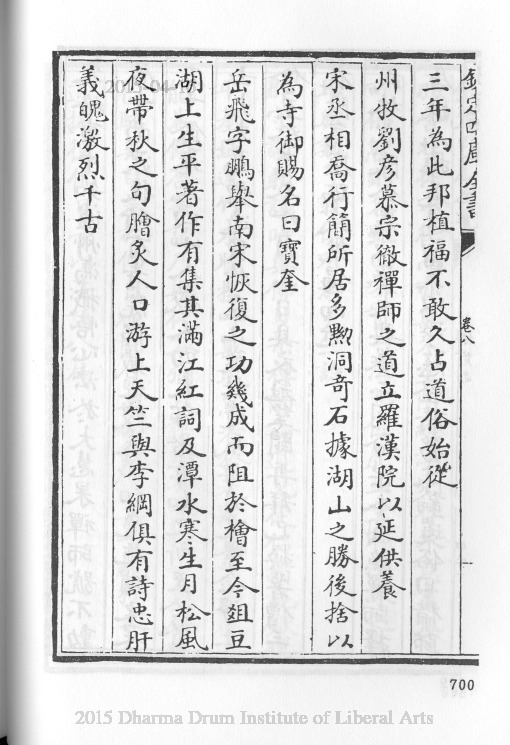 欽定四庫全書
卷八
三年為此邦植福不敢久占道俗始從
州牧劉彥慕宗徹禪師之道立羅漢院以延供養
宋丞相喬行簡所居多勲洞奇石據湖山之勝後捨以
為寺御賜名曰寶奎
岳飛字鵬舉南宋恢復之功幾成而阻於檜至今爼豆
湖上生平著作有集其滿江紅詞及潭水寒生月松風
夜帶秋之句膾炙人口游上天竺與李綱俱有詩忠肝
義魄激烈千古
700
2015 Dharma Drum Institute of Liberal Arts